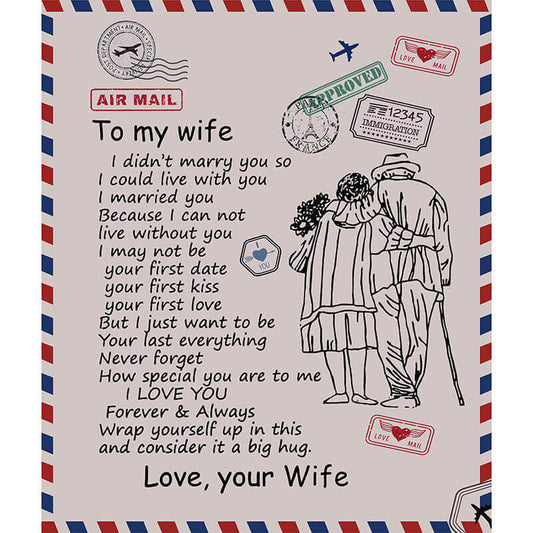 POST DEPARTMENT • AIR MAIL • SPECIAL DELIVERY
AIR MAIL
LOVE MAIL
APPROVED
PARIS
FRANCE
12345
IMMIGRATION
To my wife
I didn't marry you so
I could live with you
I married you
Because I can not
live without you
I may not be
your first date
your first kiss
your first love
But I just want to be
Your last everything
Never forget
How special you are to me
I LOVE YOU
Forever & Always
Wrap yourself up in this
and consider it a big hug.
Love, your Wife
I
YOU
LOVE MAIL